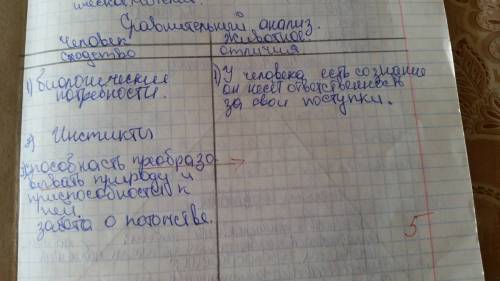 Сравнительный анализ.
Человек животное.
сходство отличия
1) биологические потребности.
1) У человека есть сознание
он несёт ответственность
за свои поступки.
2) Инстикты
способность преобразо
вывать природу и
приспособиться к
ней.
забота о потомстве.
5